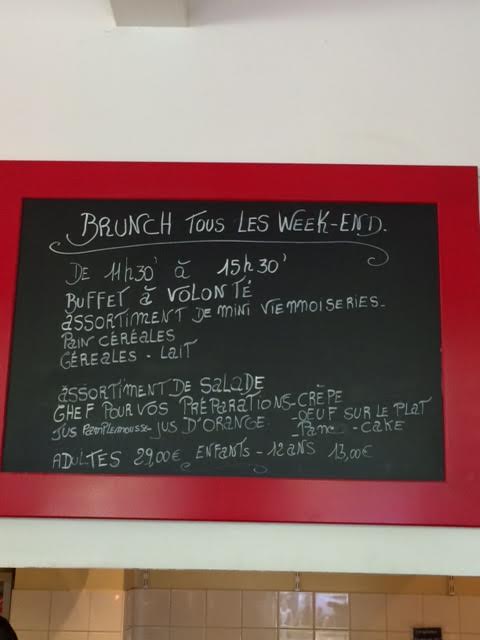 BRUNCH TOUS LES WEEK-END.
DE 11h30' à 15h30'
BUFFET à VOLONTÉ
ASSORTIMENT DE MINI VIENNOISERIES-
PAIN CÉRÉALES
CÉREALES - LAIT
ASSORTIMENT DE SALADE
CHEF POUR VOS PRÉPARATIONS-CRÊPE
-OEUF SUR LE PLAT
JUS PAMPLEMOUSSE-JUS D'ORANGE -PANC-CAKE
ADULTES 29,00€ ENFANTS -12 ANS 13,00€